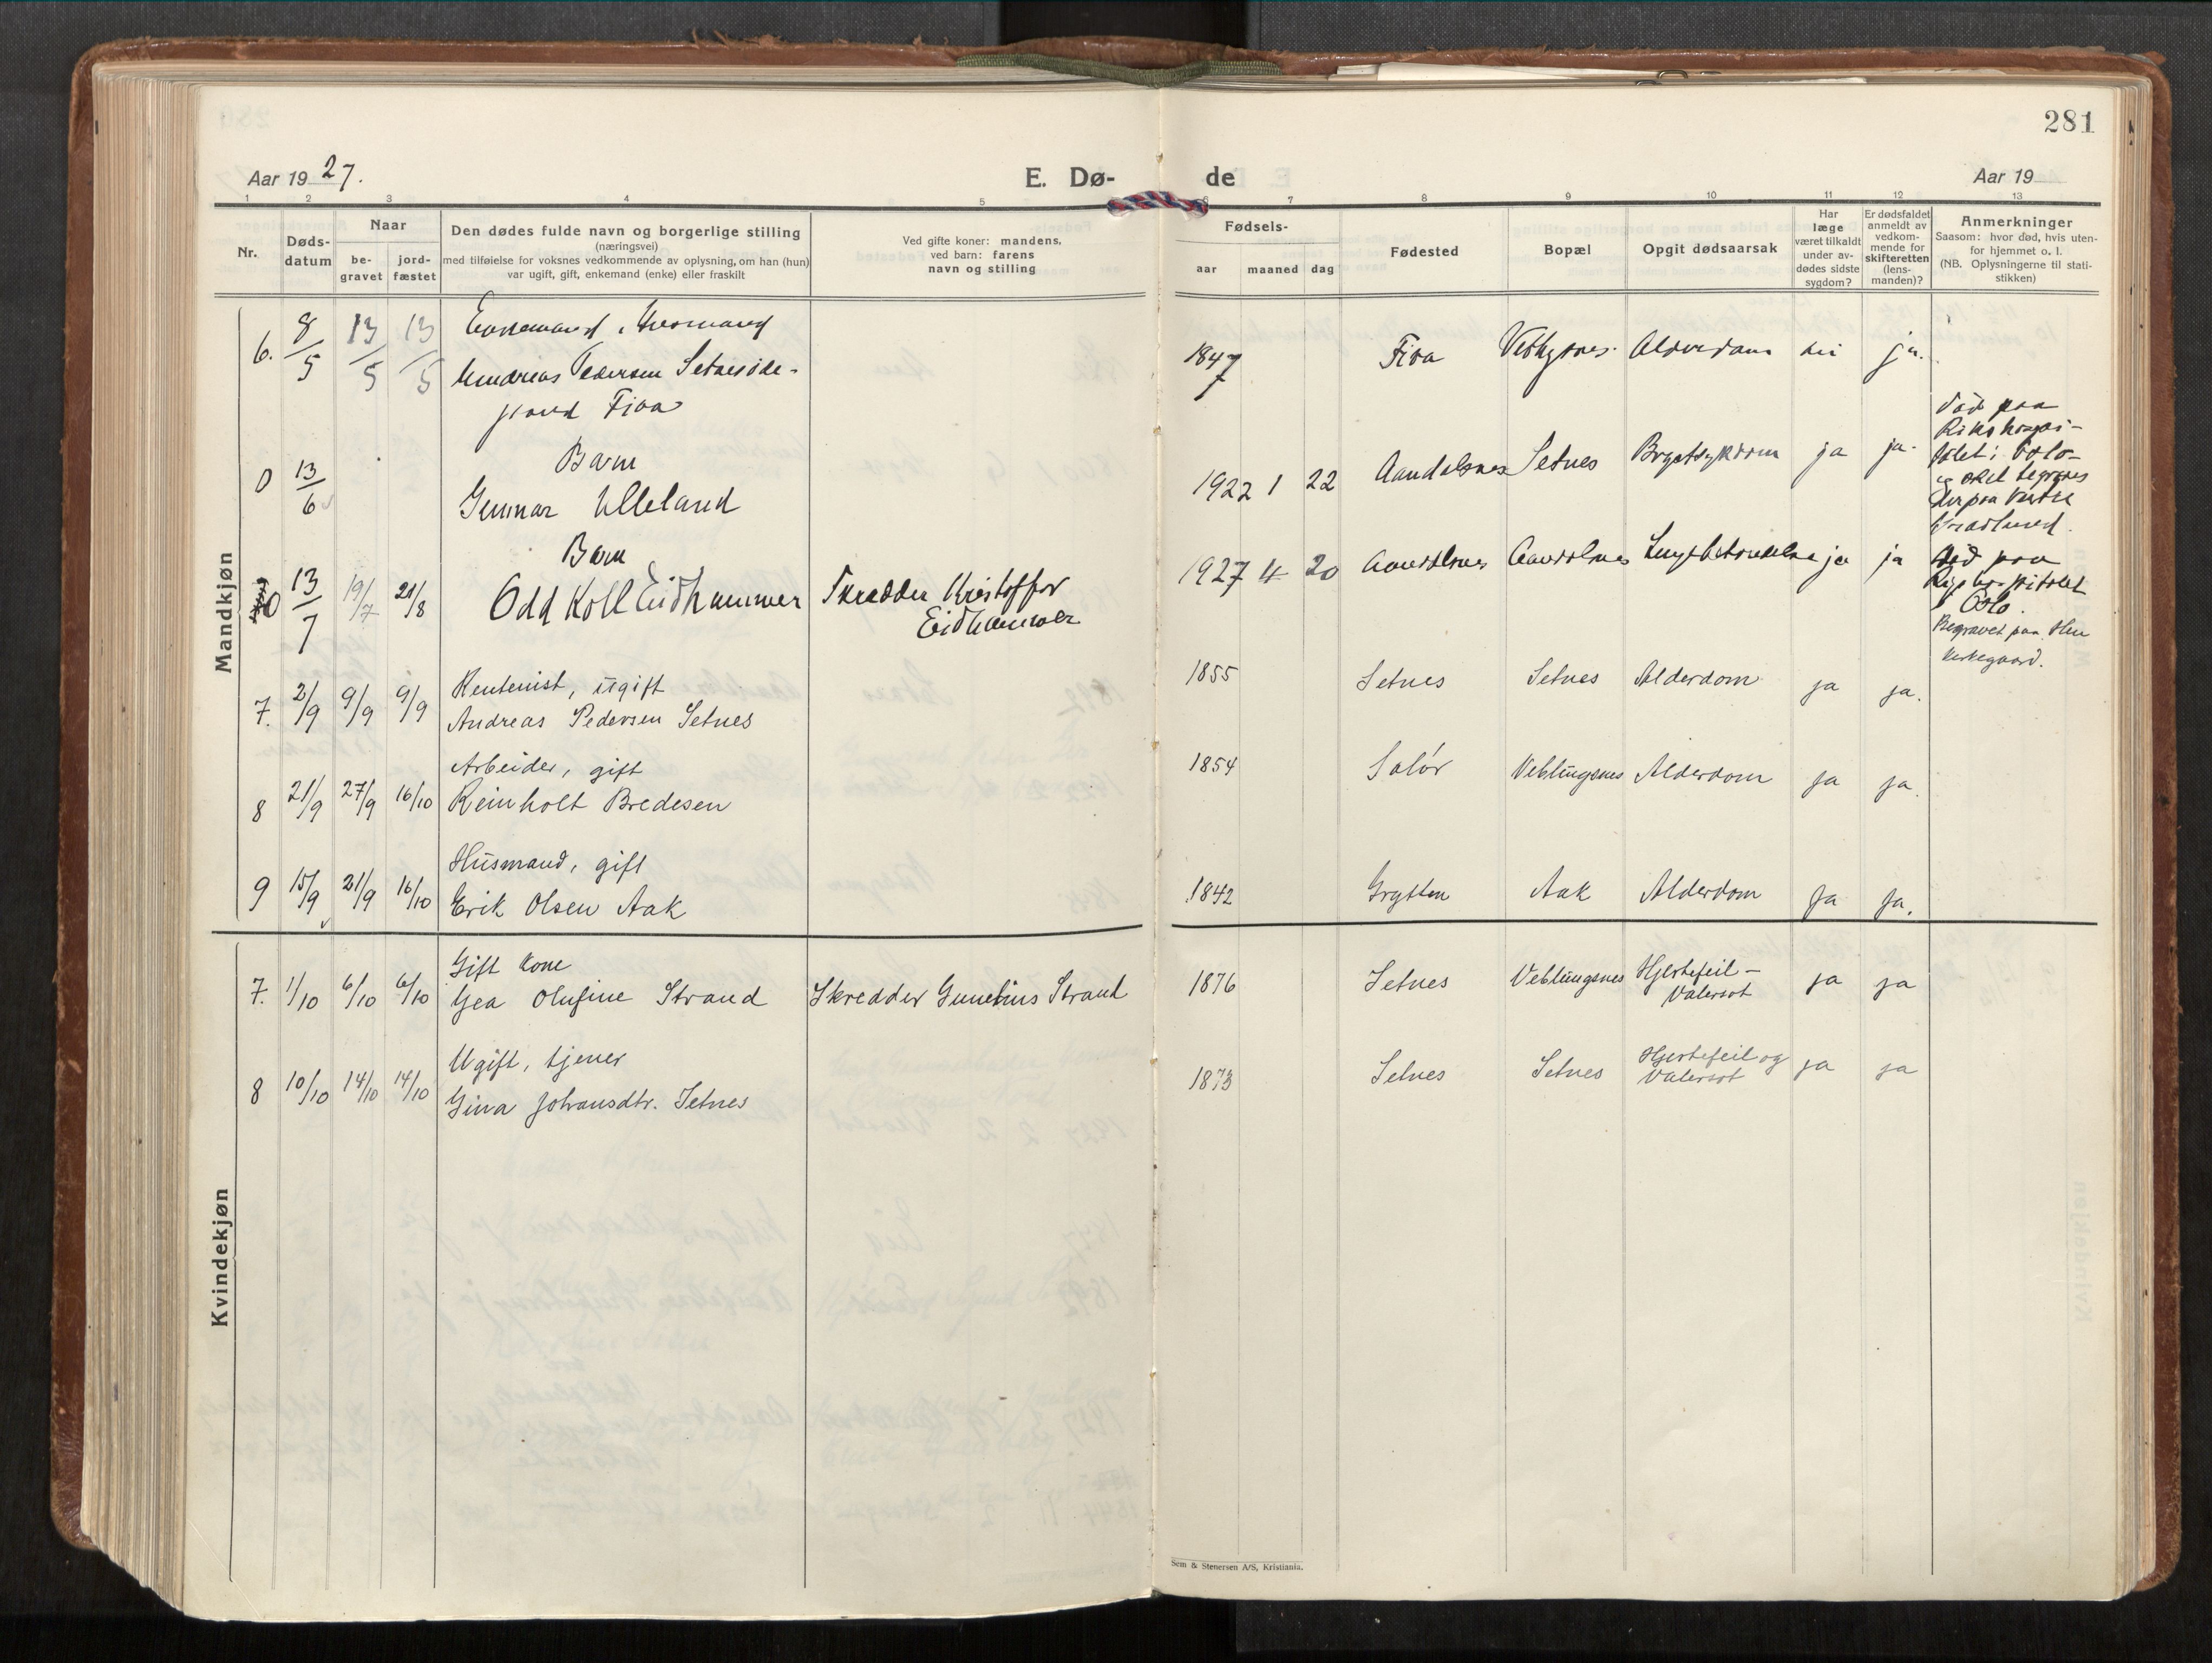 281
Aar 1927.
E. Dø-
de
Aar 19
1 2 3 4 5 6 7 8 9 10 11 12 13
Nr.
Døds-
datum
Naar
be-
gravet
jord-
fæstet
Den dødes fulde navn og borgerlige stilling
(næringsvei)
med tilføielse for voksnes vedkommende av oplysning, om han (hun)
var ugift, gift, enkemand (enke) eller fraskilt
Ved gifte koner: mandens,
ved barn: farens
navn og stilling
Fødsels-
aar maaned dag
Fødested
Bopæl
Opgit dødsaarsak
Har
læge
været tilkaldt
under av-
dødes sidste
sygdom?
Er dødsfaldet
anmeldt av
vedkom-
mende for
skifteretten
(lens-
manden)?
Anmerkninger
Saasom: hvor død, hvis uten-
for hjemmet o. l.
(NB. Oplysningerne til stati-
stikken)
Mandkjøn
6. 8/5 13/5 13/5
Pedersen Setnesøde-
Fiva
1847 Fiva ja.
Barn
0 13/6 Gunnar Ulleland
1922 1 22 Aandalsnes Setnes Brystsykdom ja ja.
Død paa
Rikshospi-
talet i Oslo
Barn
0 13/7 19/7 21/8 Odd Koll Eidhammer Skredder Kristoffer
Eidhammer
1927 4 20 Aandalsnes Aandalsnes Lungebetændelse ja ja
Død paa
Rigshospitalet
Oslo.
Begravet paa Hen
kirkegaard.
Rentenist, ugift
7. 2/9 9/9 9/9 Andreas Pedersen Setnes
1855 Setnes Setnes Alderdom ja ja.
Arbeider, gift
8 21/9 27/9 16/10 Reinholt Bredesen
1854 Solør Veblungsnes Alderdom ja ja.
Husmand, gift
9 15/9 21/9 16/10 Erik Olsen Aak
1842 Grytten Aak Alderdom Ja Ja.
Kvindekjøn
Gift kone
7. 1/10 6/10 6/10 Gea Olufine Strand Skredder Gunelius Strand
1876 Setnes Veblungsnes Hjertefeil-
Vatersot ja ja
Ugift, tjener
8 10/10 14/10 14/10 Gina Johansdtr. Setnes
1873 Setnes Setnes Hjertefeil og
Vatersot ja ja
Sem & Stenersen A/S, Kristiania.